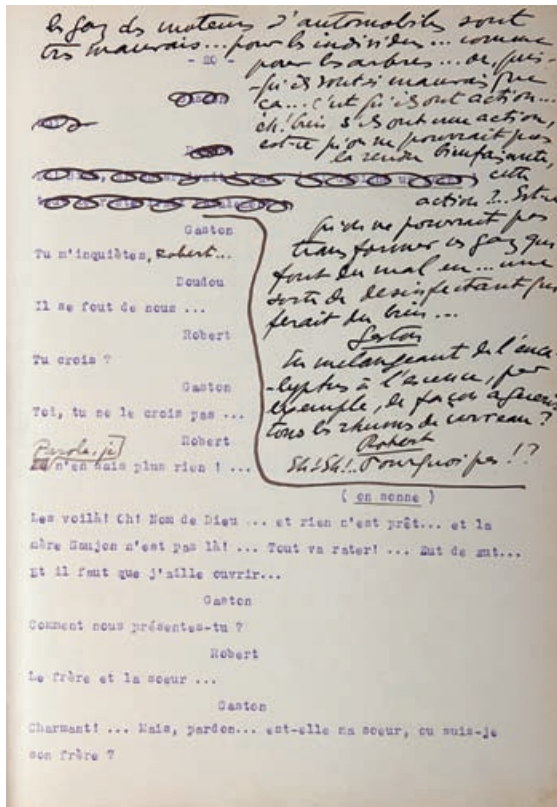 les gaz des moteurs d'automobiles sont
très mauvais... pour les individus... comme
pour les arbres... or, puis-
- 20 -
-qu'ils sont si mauvais que
ça... c'est qu'ils ont action...
eh! bien, s'ils ont une action,
est-ce qu'on ne pourrait pas
la rendre bienfaisante,
cette
action?... Est-ce
qu'on ne pourrait pas
transformer ces gaz qui
font du mal en... une
sorte de désinfectant qui
ferait du bien...
Gaston
En mélangeant de l'euca
-lyptus à l'essence, par
exemple, de façon à guérir
tous les rhumes de cerveau?
Robert
Eh! Eh!.. Pourquoi pas!?
Gaston
Tu m'inquiètes, Robert...
Doudou
Il se fout de nous ...
Robert
Tu crois ?
Gaston
Toi, tu ne le crois pas ...
Robert
Parole, je
n'en sais plus rien ! ...
( on sonne )
Les voilà! Oh! Nom de Dieu ... et rien n'est prêt... et la
mère Saujon n'est pas là! ... Tout va rater! ... Zut de zut...
Et il faut que j'aille ouvrir...
Gaston
Comment nous présentes-tu ?
Robert
Le frère et la soeur ...
Gaston
Charmant! ... Mais, pardon... est-elle ma soeur, ou suis-je
son frère ?